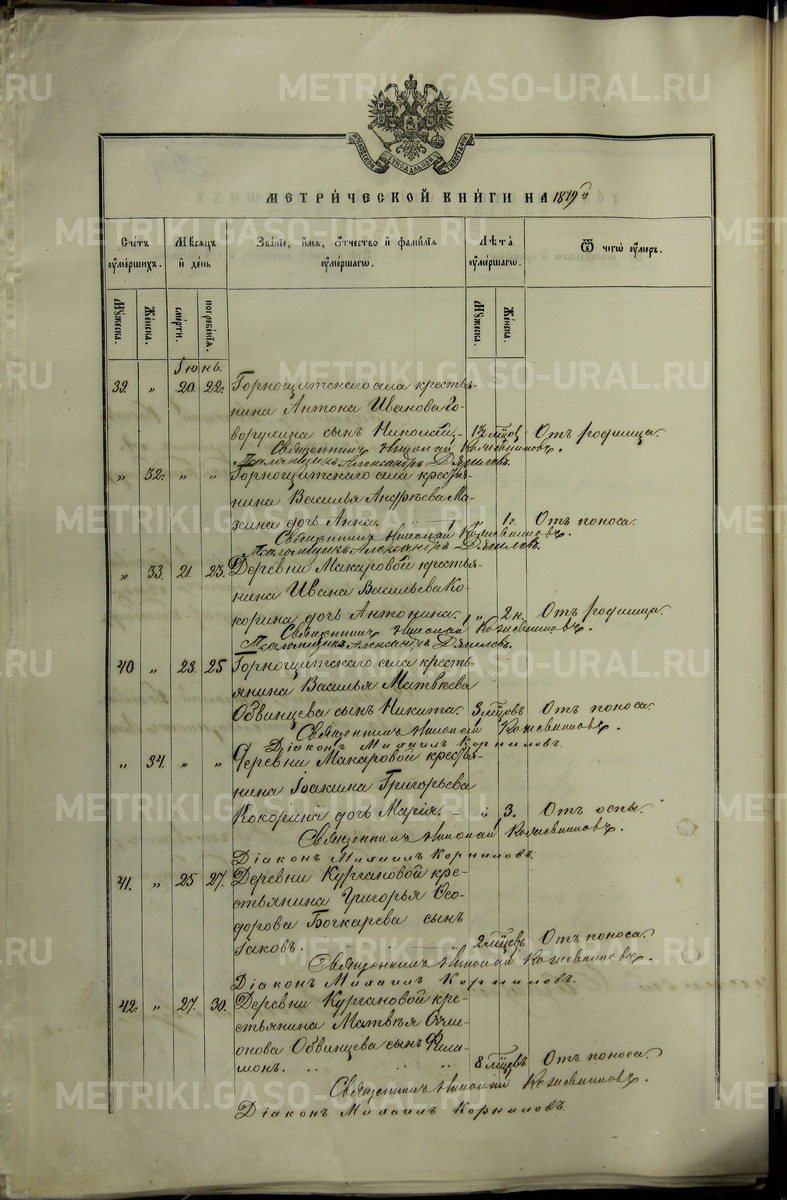 METRIKI.GASO-URAL.RU
МЕТРИЧЕСКОЙ КНИГИ НА 1879 г.
Счетъ умершихъ. Мѣсяцъ и день Званіе, имя, отчество и фамилія умершаго. Лѣта умершаго. Ѿ чего умеръ.
Мужеска. Женска. смерти. погребенія. Мужеска. Женска.
Іюнь.
39. „ 20. 22. Горнощитскаго села крестья-
нина Антона Иванова Го-
ворухина сынъ Николай 1½ мѣсяцъ Отъ родимца.
Священникъ Николай Кожевниковъ.
Псаломщикъ Александръ
„ 32. „ „ Горнощитскаго села крестья-
нина Василья Андрѣева Ма-
зина дочь Анна. 1 г. Отъ поноса.
Священникъ Николай Кожевниковъ.
Псаломщикъ Александръ
„ 33. 21. 23. Деревни Макаровой крестья-
нина Ивана Васильева Ко-
корина дочь Антонина. „ 2 н. Отъ родимца.
Священникъ Николай Кожевниковъ.
Псаломщикъ Александръ
40 „ 23. 25 Горнощитскаго села кресть-
янина Василья Матвѣева
Обвинцева сынъ Никита. 3 мѣцовъ Отъ поноса.
Священникъ Николай Кожевниковъ.
Діаконъ Михаилъ Корниловъ.
„ 34. „ „ Деревни Макаровой крестья-
нина Іоакима Григорьева
Кокорина дочь Марія. – „ 3. Отъ оспы.
Священникъ Николай Кожевниковъ.
Діаконъ Михаилъ Корниловъ.
41. „ 25 27. Деревни Кургановой кре-
стьянина Григорья Ѳео-
дорова Бочкарева сынъ
Іаковъ. 2 мѣцевъ Отъ поноса.
Священникъ Николай Кожевниковъ.
Діаконъ Михаилъ Корниловъ.
42. „ 27. 30. Деревни Кургановой кре-
стьянина Матвѣя
Обвинцева сынъ Фили-
монъ. 8 мѣцевъ Отъ поноса.
Священникъ Николай Кожевниковъ.
Діаконъ Михаилъ Корниловъ.